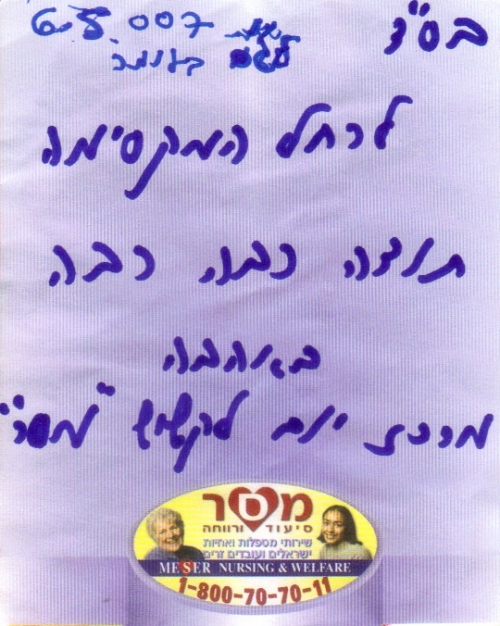 בס"ד
6.5.007
לרחל המקסימה
תודה רבה רבה
באהבה
מרכז יום לקשיש "מסר"
מסר
סיעוד ורווחה
שירותי מטפלות ואחיות
ישראלים ועובדים זרים
MESER NURSING & WELFARE
1-800-70-70-11